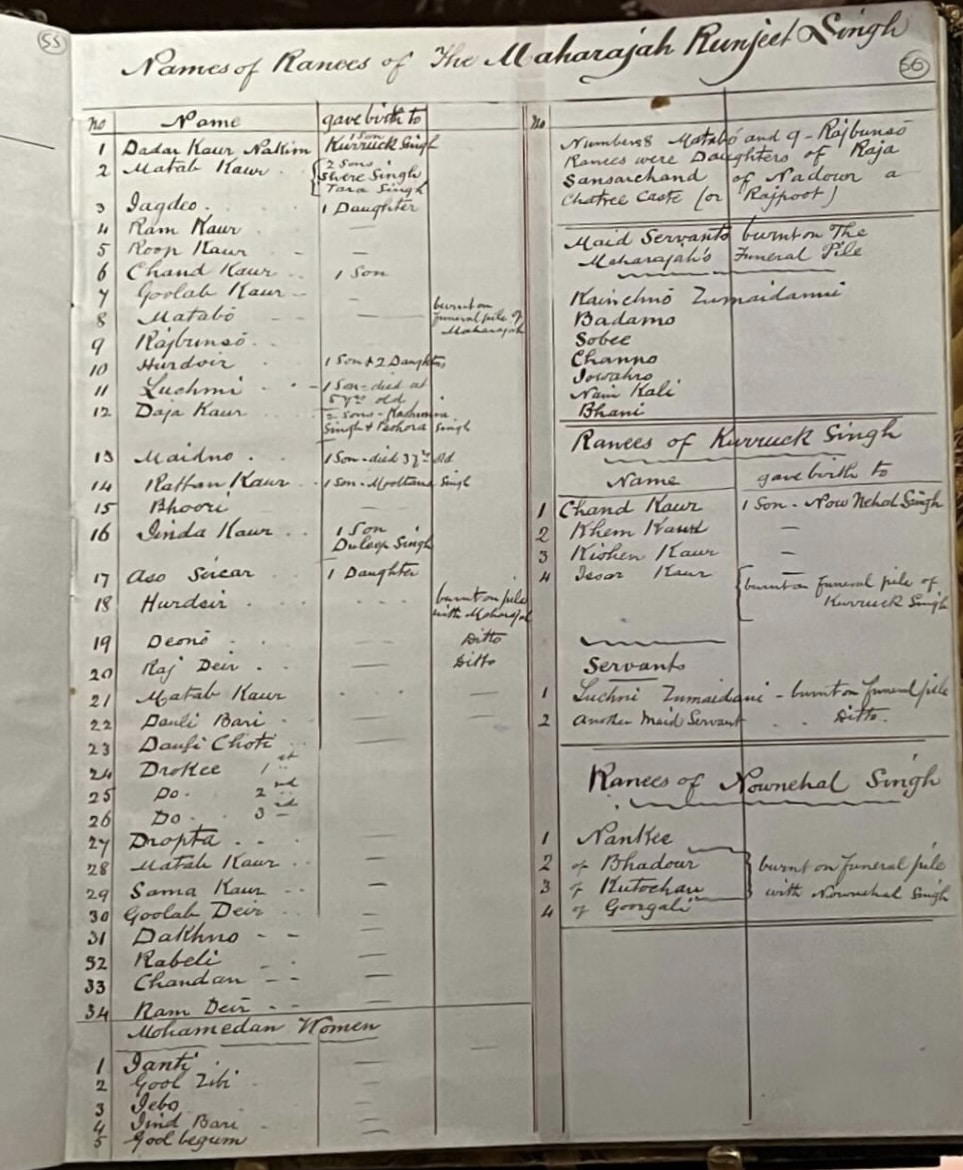 55
Names of Ranees of The Maharajah Runjeet Singh
56
no Name gave birth to
1 Dadar Kaur Nakim 1 son Kurruck Singh
2 Matab Kaur 2 Sons Shere Singh Tara Singh
3 Jagdeo 1 Daughter
4 Ram Kaur —
5 Roop Kaur —
6 Chand Kaur 1 Son
7 Goolab Kaur —
8 Matabo — burnt on funeral pile of Maharajah
9 Rajbunso
10 Hurdvir 1 Son & 2 Daughters
11 Luchmi 1 Son - died at 5 yrs old
12 Daja Kaur 2 sons - Kashmira Singh & Peshora Singh
13 Maidno 1 Son - died 3 yrs old
14 Rattan Kaur 1 Son - Mooltana Singh
15 Bhoori —
16 Jinda Kaur 1 Son Duleep Singh
17 Aso Sircar 1 Daughter
18 Hurdeir burnt on pile with Maharajah
19 Deono — Ditto
20 Raj Deir — Ditto
21 Matab Kaur —
22 Danli Bari — —
23 Danli Choti
24 Drokee 1st
25 Do. 2nd
26 Do. 3rd
27 Dropta —
28 Matab Kaur —
29 Sama Kaur —
30 Goolab Deir —
31 Dakhno —
32 Rabeli —
33 Chandan —
34 Ram Deir —
Mohamedan Women
1 Janti —
2 Gool Zibi —
3 Jebo —
4 Jind Bari —
5 Gool begum —
No
Number 8 Matabo and 9 - Rajbunso
Ranees were Daughters of Raja
Sansarchand of Nadown a
Chatree Caste (or Rajpoot)
Maid Servants burnt on The
Maharajah's Funeral Pile
Kainchno Zumaidanni
Badamo
Sobee
Channo
Jowahro
Nain Kali
Bhani
Ranees of Kurruck Singh
Name gave birth to
1 Chand Kaur 1 Son - Now Nehal Singh
2 Khem Kaur —
3 Kishen Kaur —
4 Isar Kaur — burnt on funeral pile of Kurruck Singh
Servants
1 Luchni Zumaidani - burnt on funeral pile
2 Another Maid Servant Ditto.
Ranees of Nownehal Singh
1 Nankee
2 of Bhadour burnt on funeral pile
3 of Kutochan with Nownehal Singh
4 of Goorgali